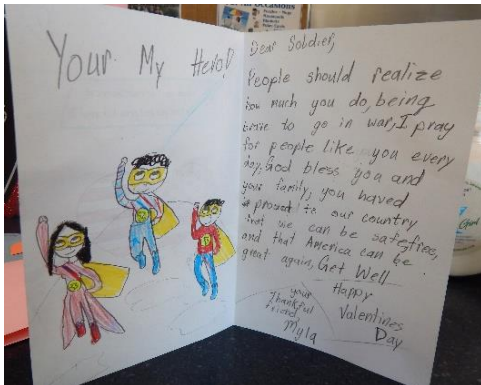 OCCASIONS
Your My Hero!
Dear Soldier,
People should realize
how much you do, being
brave to go in war, I pray
for people like you every
day, God bless you and
your family, you haved
proved to our country
that we can be safe, free,
and that America can be
great again, Get Well
Happy
Valentines
Day
your
Thankful
friend
Myla